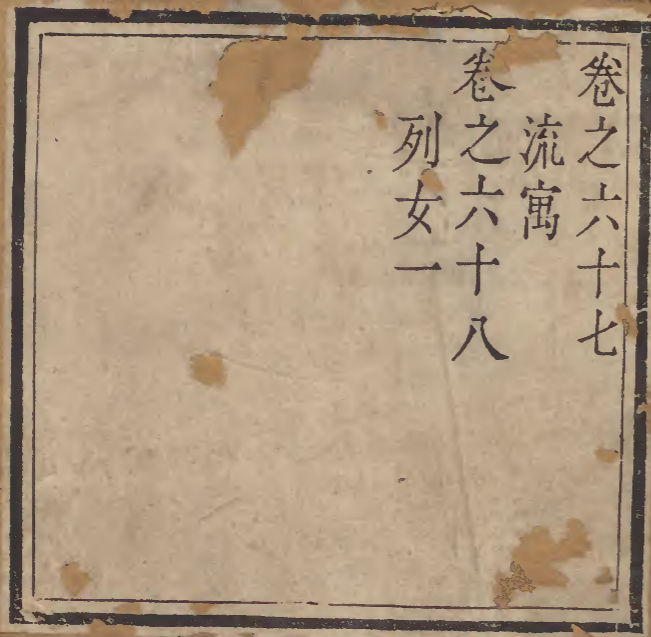 卷之六十七
流寓
卷之六十八
列女一